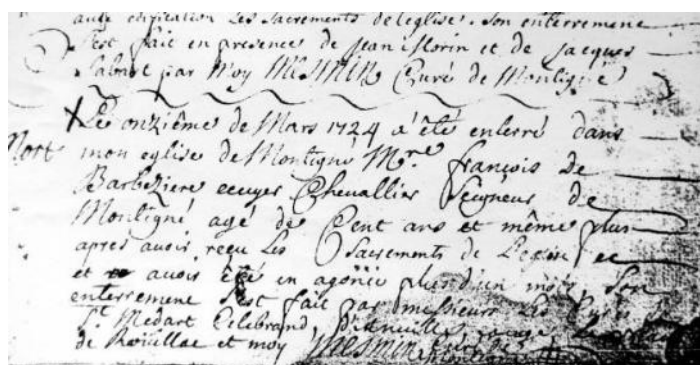 avec edification Les Sacrements de l'eglise. Son enterrement
s'est fait en presence de Jean Morin et de Jacques
par Moy Mesmin Curé de Montigné
Le onzième de Mars 1724 a été enterré dans
Mort mon eglise de Montigné Mre. françois de
Barbeziere ecuyer Chevallier Seigneur de
Montigné agé de Cent ans et même plus
apres avoir reçu Les Sacrements de L'eglise
et avoir été en agonie plus d'un mois, Son
enterrement s'est fait par messieurs Les Curés
St. Medart Celebrand, d'anville,
de Roüillac et moy Mesmin Curé de